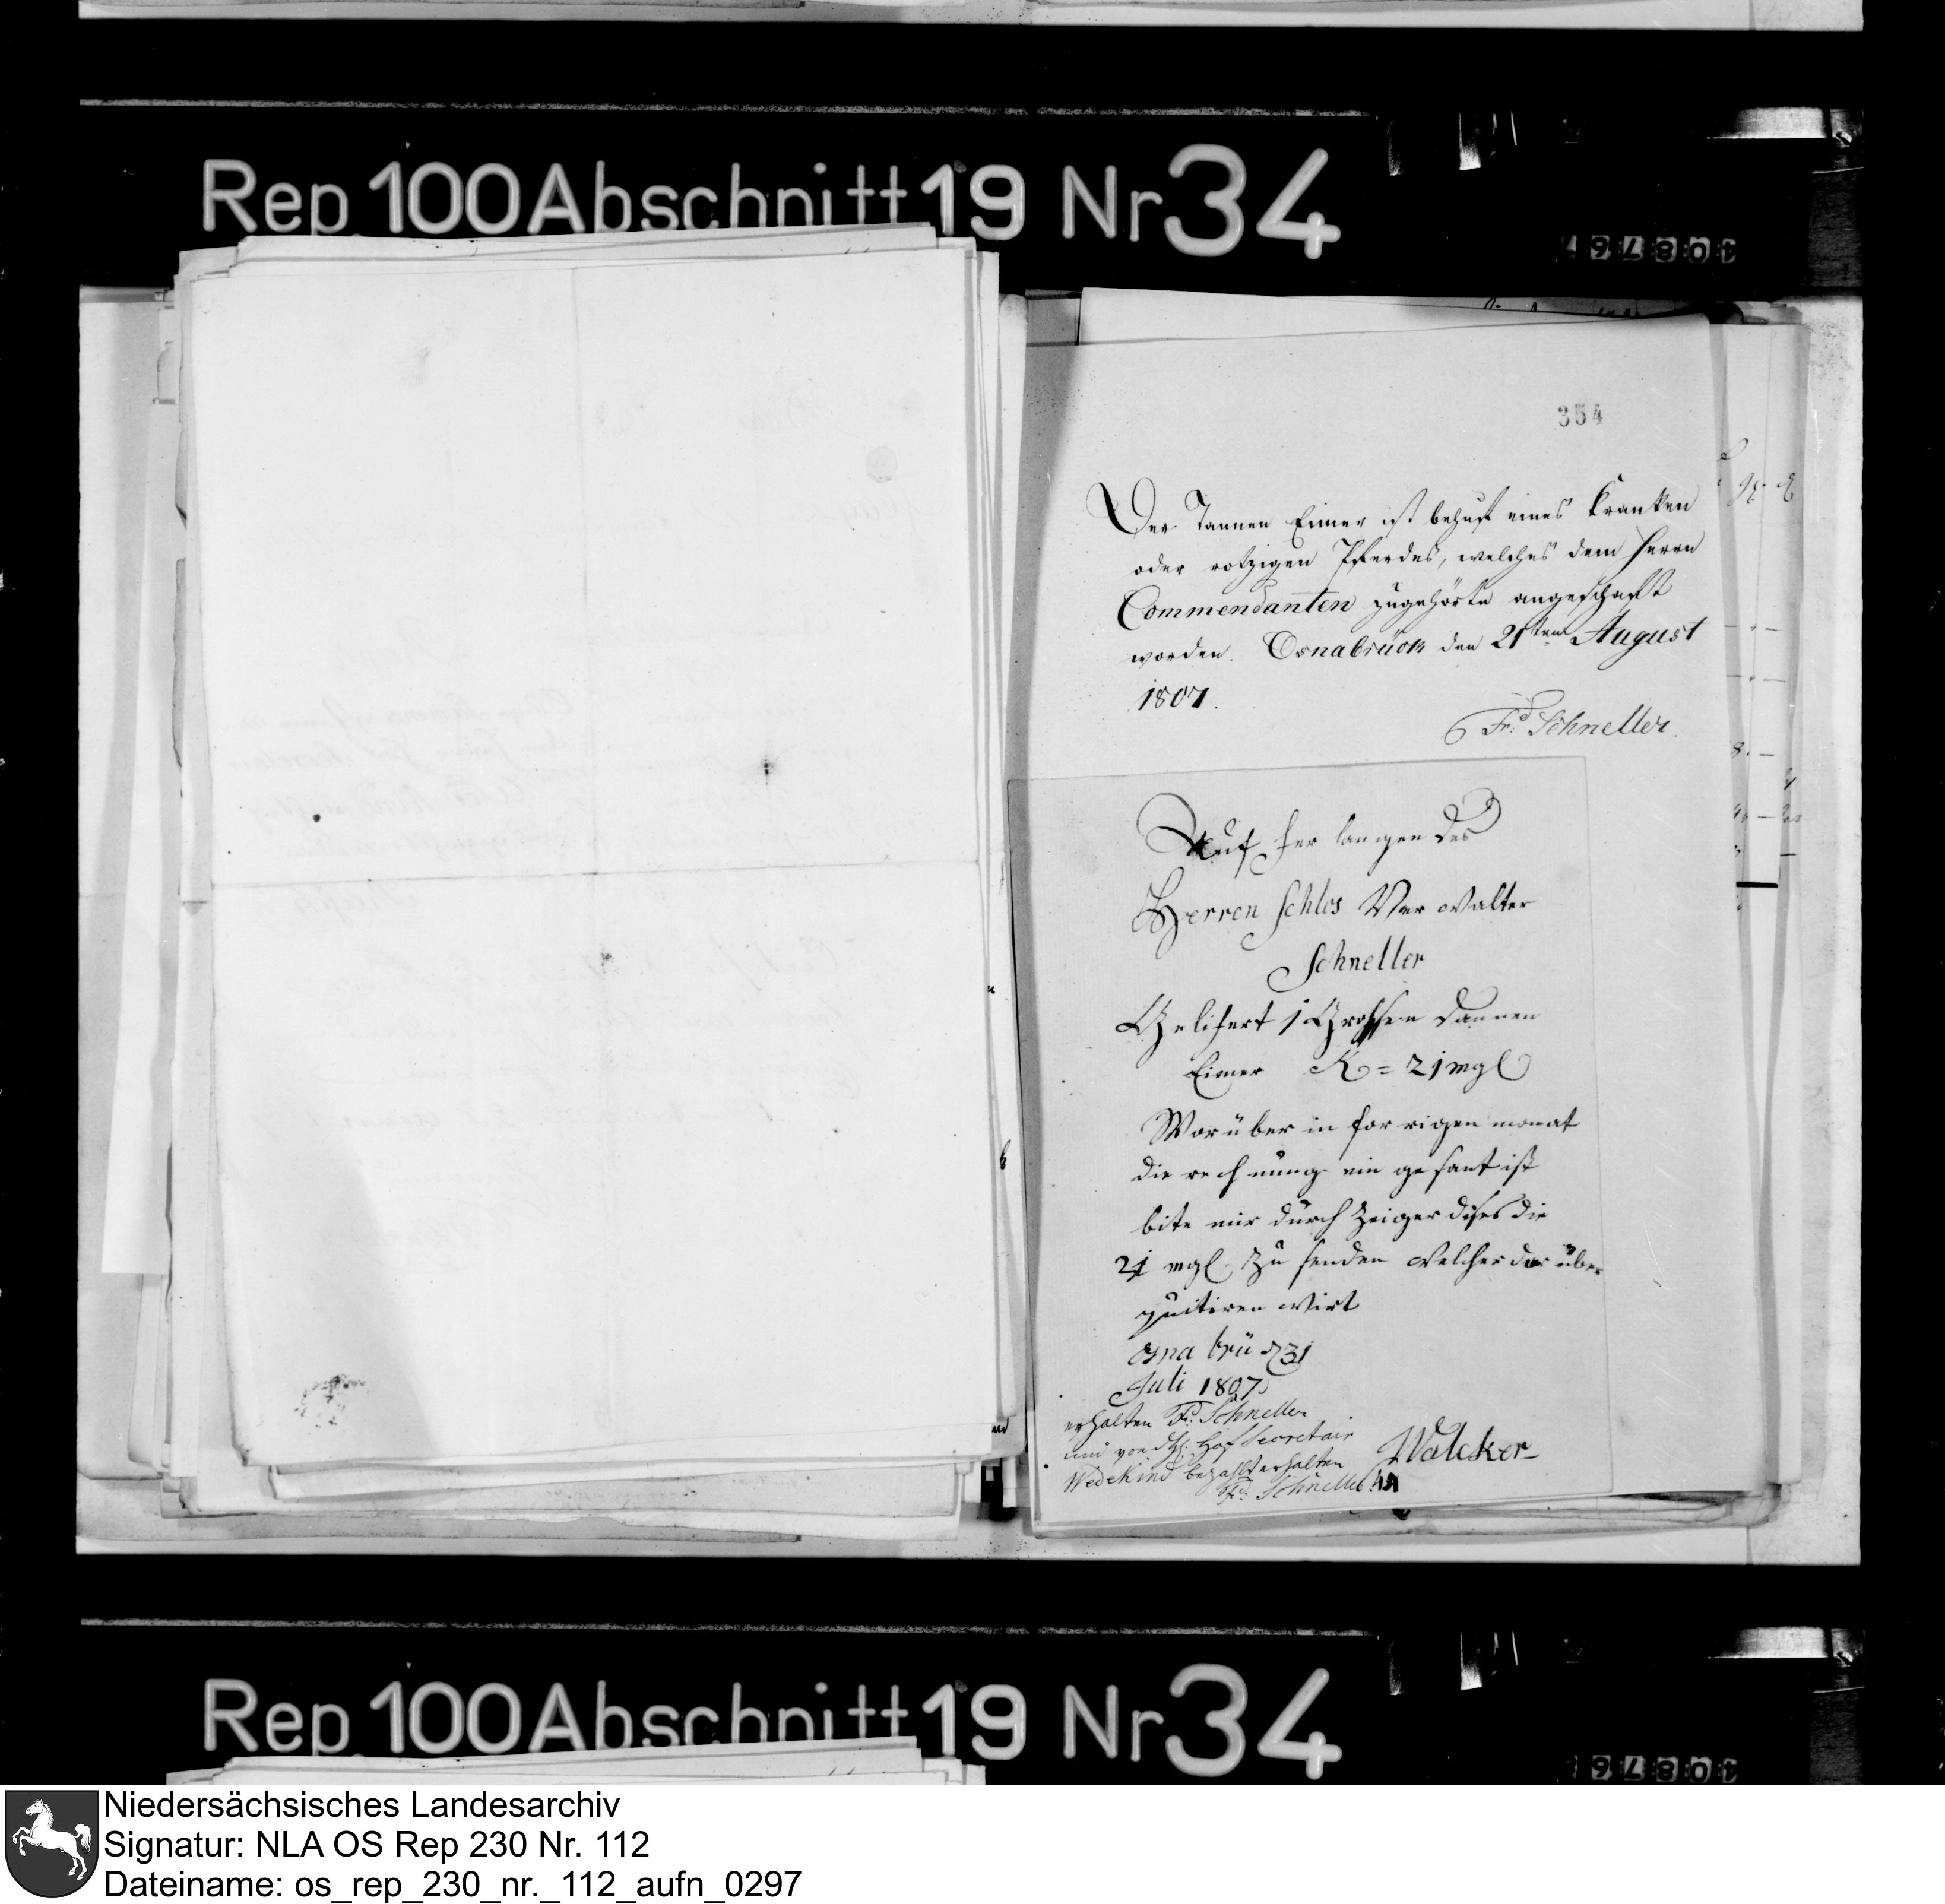 Rep. 100 Abschnitt 19 Nr 34
354
Der Tannen Eimer ist behuf eines kranken
oder rotzigen Pferdes, welches dem Herrn
Commendanten zugehörte angeschafft
worden. Osnabrück den 21ten August
1807.
Fr: Schneller.
Auf fer langen des
Herren Schlos Ver walter
Schneller
Gelifert 1 Grossen dannen
Eimer = 21 mgl
Worüber in for rigen monat
die rech nung ein gesant ist
bite mir durch Zeiger dises die
21 mgl zu senden welcher dar über
quitiren wirt
Osna brü 31
Juli 1807
erhalten Fr: Schneller
und von Hof Secretair
Wedekind bezahlt erhalten
Fr: Schneller
Walcker
Rep. 100 Abschnitt 19 Nr 34
Niedersächsisches Landesarchiv
Signatur: NLA OS Rep 230 Nr. 112
Dateiname: os_rep_230_nr._112_aufn_0297